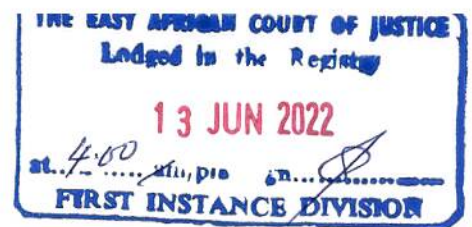 THE EAST AFRICAN COURT OF JUSTICE
Lodged in the Registry
13 JUN 2022
at 4:00 am, pm in
FIRST INSTANCE DIVISION